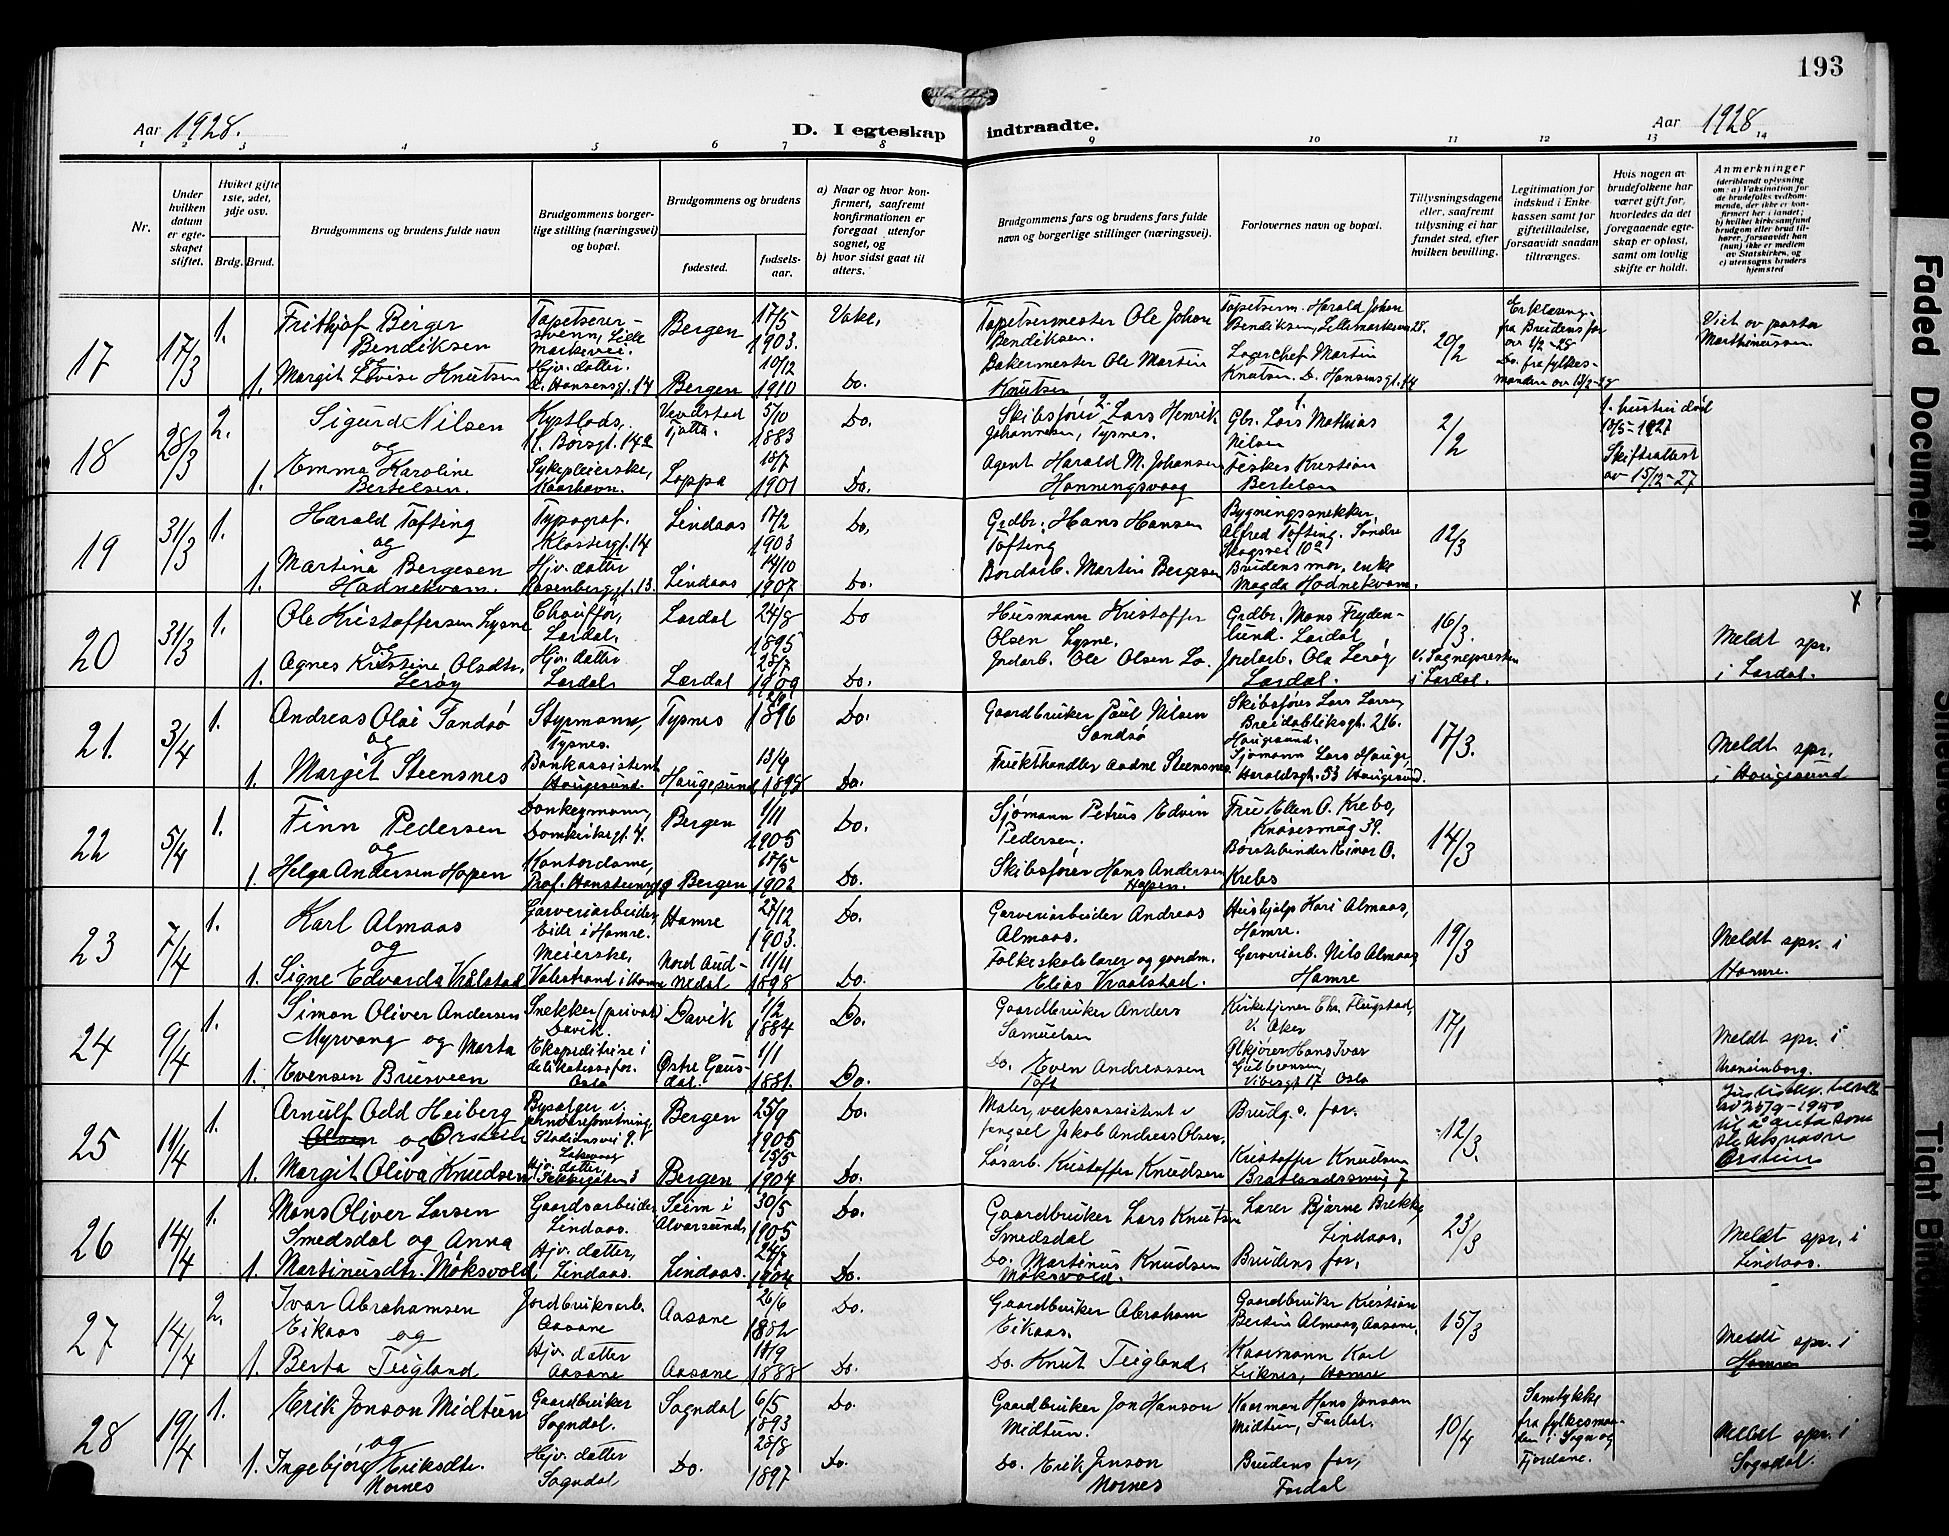 193
Aar 1928.
D. I egteskap indtraadte.
Aar 1928
1 2 3 4 5 6 7 8 9 10 11 12 13 14
Nr.
Under hvilken datum er egteskapet stiftet.
Hviket gifte 1ste, 2det, 3dje osv.
Brdg. Brud.
Brudgommens og brudens fulde navn
Brudgommens borgerlige stilling (næringsvei) og bopæl.
Brudgommens og brudens
fødested.
fødselsaar.
a) Naar og hvor konfirmert, saafremt konfirmationen er foregaat utenfor sognet, og
b) hvor sidst gaat til alters.
Brudgommens fars og brudens fars fulde navn og borgerlige stillinger (næringsvei).
Forlovernes navn og bopæl.
Tillysningsdagene eller, saafremt tillysning ei har fundet sted, efter hvilken bevilling.
Legitimation for indskud i Enkekassen samt for giftetilladelse, forsaavidt saadan tiltrænges.
Hvis nogen av brudefolkene har været gift før, hvorledes da det foregaaende egteskap er opløst, samt om lovlig skifte er holdt.
Anmerkninger
(deriblandt oplysning om: a) Vaksination for de brudefolks vedkommende, der ikke er konfirmert her i landet; b) hvilket kirkesamfund brudgom eller brud tilhører, forsaavidt han (hun) ikke er medlem av Statskirken, og c) utensogns bruders hjemsted
17 17/3 1. Frithjof Birger Bendiksen
Tapetserersvenn, Lille Markevei
Bergen 17/5 1903. Vake.
Tapetsermester Ole Johan Bendiksen.
Tapetserm. Harald Johan Bendiksen, Lillemarkevei 28.
20/2
Erklæring fra Brudens far av 1/2-28
Do. fra fylkesmanden av 13/2-28
Viet av pastor Marthinussen
og
1. Margit Lovise Knutsen
Hjv. datter. D. Hansensgt. 14
Bergen 10/12 1910 Do.
Bakermester Ole Martin Knutsen
Lagerchef Martin Knutsen D. Hansensgt. 14
18 28/3 2. Sigurd Nilsen
og
Kystlods,
5/10 1883 Do.
Skibsfører Lars Henrik Johannesen, Tysnes.
Gbr. Lars Mathias Nilsen
2/2
1. hustru død 13/5-1927
Skifteattest av 15/12-27
1. Emma Karoline Bertelsen.
Sykepleierske,
Loppa 18/7 1901 Do.
Agent Harald M. Johansen Honningsvaag
Fisker Kristian Bertelsen
19 31/3 1. Harald Tofting
og
Typograf. Klostergt. 14
Lindaas 17/2 1903 Do.
Grdbr. Hans Hansen Tofting
Bygningssnekker, Alfred Tofting. Søndre Skogsvei 10a
12/3
1. Martina Bergesen Hodnekvam.
Hjv. datter Rosenberggt. 13.
Lindaas 14/10 1907 Do.
Bordarb. Martin Bergesen
Brudens mor, enke Magda Hodnekvam.
20 31/3 1. Ole Kristoffersen Lysne
og
Chauffør, Lærdal.
Lærdal 24/8 1895 Do
Husmann Kristoffer Olsen Lysne.
Grdbr. Mons Frydenlund. Lærdal
16/3. v. Sognepresten i Lærdal.
Meldt spr. i Lærdal.
1. Agnes Kristine Olsdtr. Lerøy
Hjv. datter Lærdal
Lærdal 28/7 1909 Do.
Jordarb. Ole Olsen Lo.
Jordarb. Ola Lerøy Lærdal.
21. 3/4 1. Andreas Olai Sandsø
og
Styrmann, Tysnes.
Tysnes 1896 Do.
Gaardbruker Paul Nilsen Sandsø
Skibsfører Lars Larsen Breidabliksgt. 216. Haugesund.
17/3.
Meldt spr. i Haugesund
1. Margit Steensnes
Bankassistent Haugesund.
Haugesund 13/4 1898 Do.
Frukthandler Aadne Steensnes.
Sjømann Lars Hauge, Haraldsgt. 53 Haugesund.
22 5/4 1. Finn Pedersen
og
Donkeymann, Domkirkegt. 4.
Bergen 1/11 1905 Do.
Sjømann Petrus Edvin Pedersen.
Fru Ellen O. Krebs, Knøsesmug 39.
14/3
1. Helga Andersen Hopen
Kontordame, Prof. Hansteensgt 9
Bergen 18/5 1902 Do.
Skibsfører Hans Andersen Hopen.
Børstebinder Einar O. Krebs
23 7/4 1. Karl Almaas
og
Garveriarbeider, bidr i Hamre.
Hamre 27/12 1903. Do.
Garveriarbeider Andreas Almaas.
Hushjelp Kari Almaas, Hamre.
19/3
Meldt spr. i Hamre.
1. Signe Edvarda Vrålstad
Meierske, Valestrand i Hamre
Nord Audnedal 11/11 1898 Do.
Folkeskolelærer og gaardm. Elias Vraalstad.
Garveriarb. Nils Almaas Hamre
24 9/4 1. Simon Oliver Andersen Myrvang og Marta
Snekker (privat) Davik.
Davik 1/2 1884 Do.
Gaardbruker Anders Samuelsen
Kirketjener Chr. Flugstad, V. Aker
17/1
Meldt spr. i
1. Evensen Brusveen
Ekspeditrise i delikatessefor. Oslo
Østre Gausdal. 1/1 1881. Do.
Do. Even Andreassen Toft
Hans Ivar Gulbrandsen, Vibesgt 17 Oslo
25 11/4 1. Arnulf Odd Heiberg Olsen og Ørstein
Bysælger v. jernvareforretning. Stadionsvei 9.
Bergen 25/9 1905 Do.
Maler, verksassistent v fengsel Jakob Andreas Olsen.
Brudg.s. far.
12/3.
1. Margit Oliva Knudsen
Hjv. datter,
Bergen 15/5 1904 Do.
Løsarb. Kristoffer Knudsen
Kristoffer Knudsen Bratlandssmug 7
26 14/4 1. Mons Oliver Larsen Smedsdal og Anna
Gaardsarbeider Lindaas.
Seim i Alversund. 30/5 1905 Do.
Gaardbruker Lars Knutsen Smedsdal
Lærer Bjarne Brekke, Lindaas.
23/3
Meldt spr. i Lindaas.
1. Martinusdtr. Moksvold
Hjv. datter, Lindaas.
Lindaas. 1904 Do.
Do. Martinus Knudsen Moksvold.
Brudens far,
27 14/4 2. Ivar Abrahamsen Eikaas og
Jordbruksarb. Aasane
Aasane 26/6 1882 Do.
Gaardbruker Abraham Eikaas.
Gaardbruker Kristian Bertin Almaas, Aasane.
15/3
Meldt spr. i Hamre
1. Berta Teigland
Hjv. datter Aasane
Aasane 18/9 1888 Do.
Do. Knut Teigland.
Kaarmann Karl Liknes, Hamre
28 19/4 1. Erik Jonson Midtun
og
Gaardbruker Sogndal.
Sogndal 6/5 1893 Do.
Gaardbruker Jon Hanson Midtun.
Kaarman Hans Jonsson Midtun, Fardal.
10/4
Samtykke fra fylkesmanden i Sogn og Fjordane.
Meldt spr. i Sogndal.
1. Ingebjørg Eriksdtr. Nornes
Hjv. datter Sogndal
Do. 28/8 1897 Do.
Do. Erik Jonson Nornes
Brudens far, Fardal
Faded Document
Tight Bind